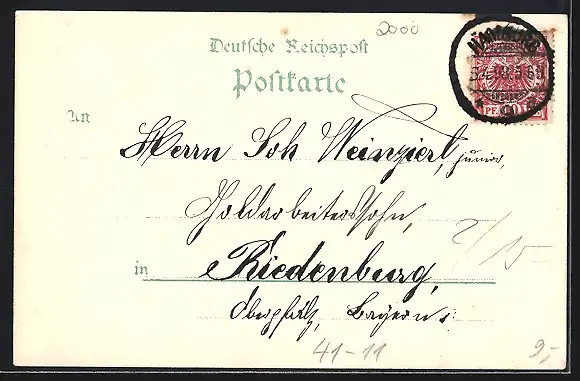 2000
Deutsche Reichspost
Postkarte
An
HAMBURG
Herrn Joh Weinzierl, junior,
Goldarbeiterssohn,
in Riedenburg,
Oberpfalz, Bayern
41-11
9,-